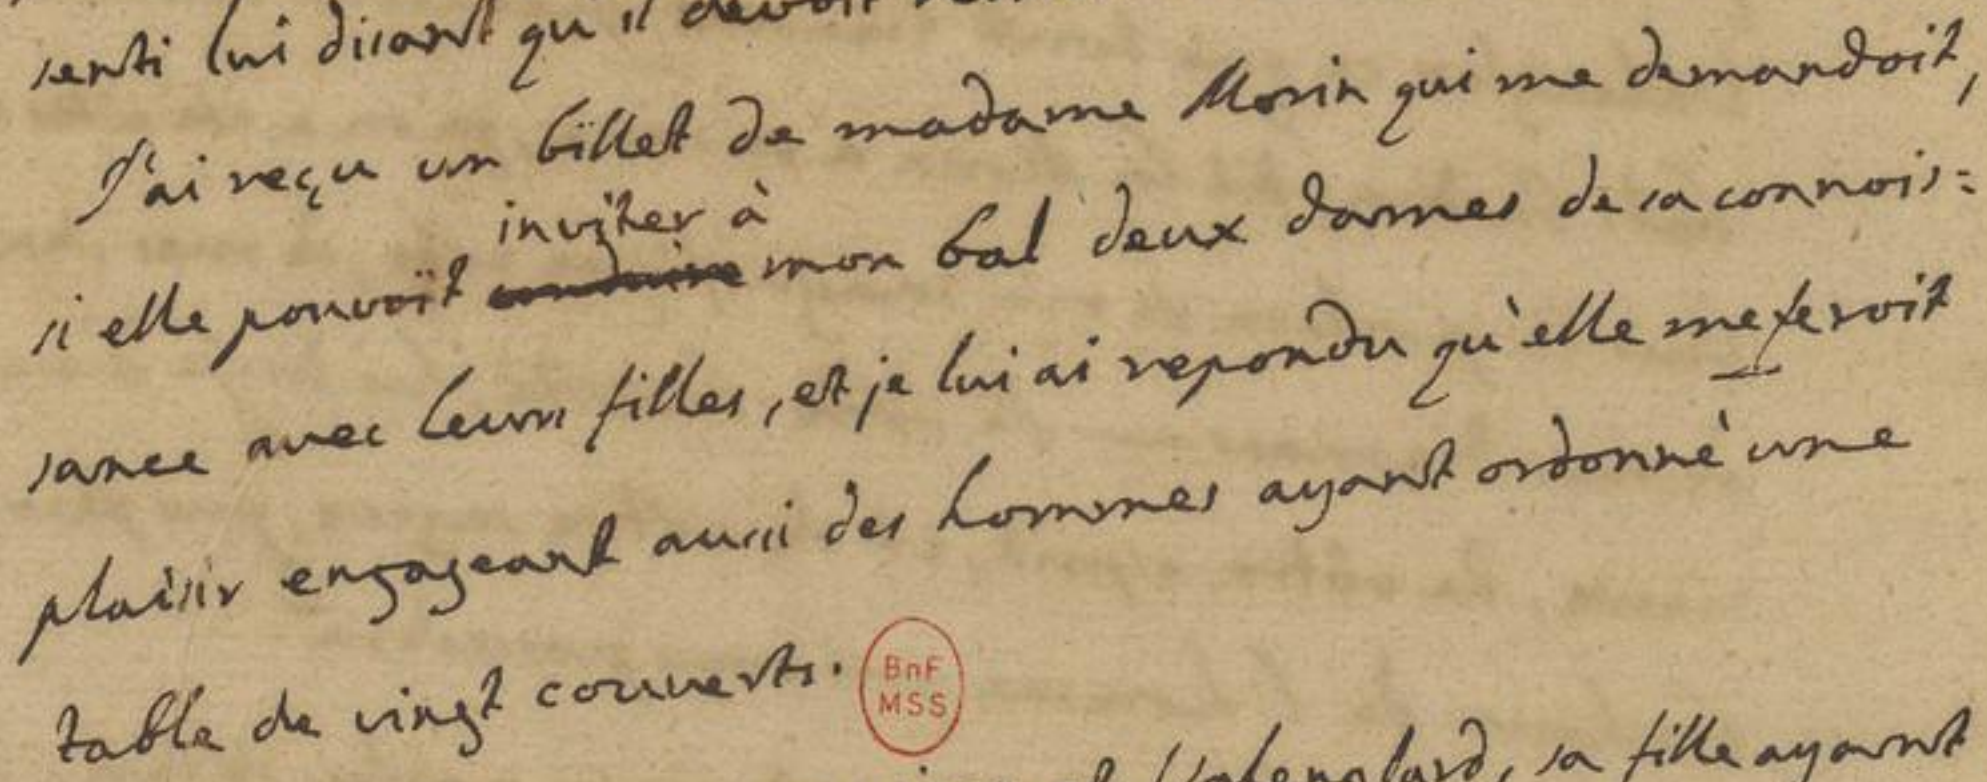 senti lui disant qu'il devoit
J'ai reçu un billet de madame Morin qui me demandoit,
inviter à
si elle pouvoit conduire mon bal deux dames de sa connois=
sance avec leurs filles, et je lui ai repondu qu'elle me feroit
plaisir engageant aussi des hommes ayant ordonné une
table de vingt couverts.
BnF
MSS
sa fille ayant